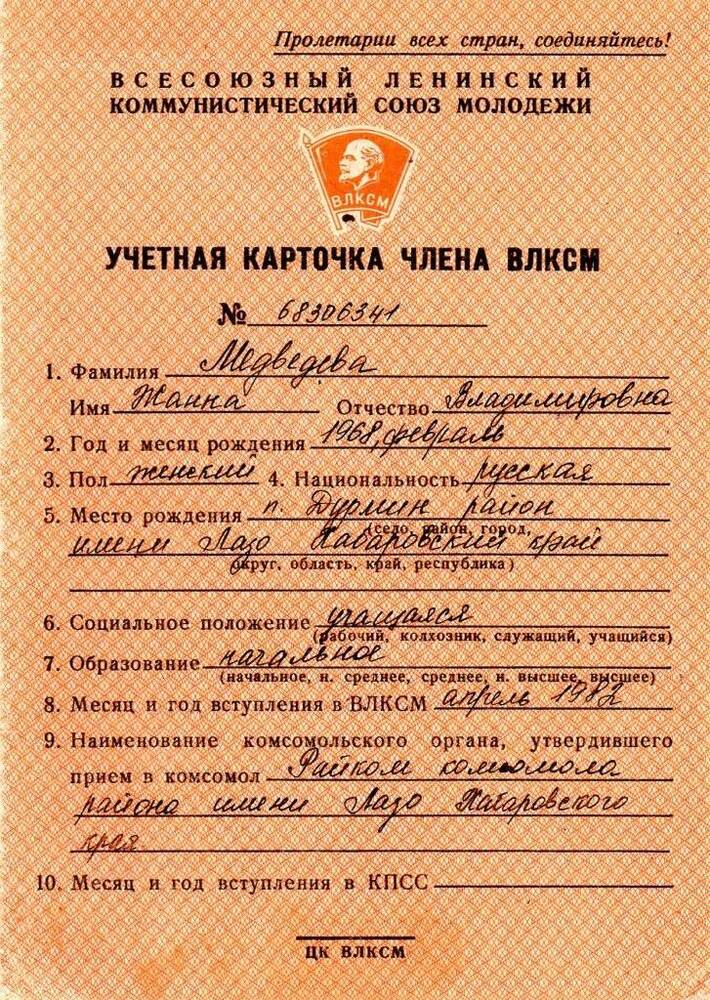 Пролетарии всех стран, соединяйтесь!
ВСЕСОЮЗНЫЙ ЛЕНИНСКИЙ
КОММУНИСТИЧЕСКИЙ СОЮЗ МОЛОДЕЖИ
ВЛКСМ
УЧЕТНАЯ КАРТОЧКА ЧЛЕНА ВЛКСМ
№ 68306341
1. Фамилия Медведева
Имя Жанна Отчество Владимировна
2. Год и месяц рождения 1968, февраль
3. Пол женский 4. Национальность русская
5. Место рождения п. Дурмин район
(село, район, город,
имени Лазо Хабаровский край
округ, область, край, республика)
6. Социальное положение учащаяся
(рабочий, колхозник, служащий, учащийся)
7. Образование начальное
(начальное, н. среднее, среднее, н. высшее, высшее)
8. Месяц и год вступления в ВЛКСМ апрель 1982
9. Наименование комсомольского органа, утвердившего
прием в комсомол Райком комсомола
района имени Лазо Хабаровского
края.
10. Месяц и год вступления в КПСС
ЦК ВЛКСМ